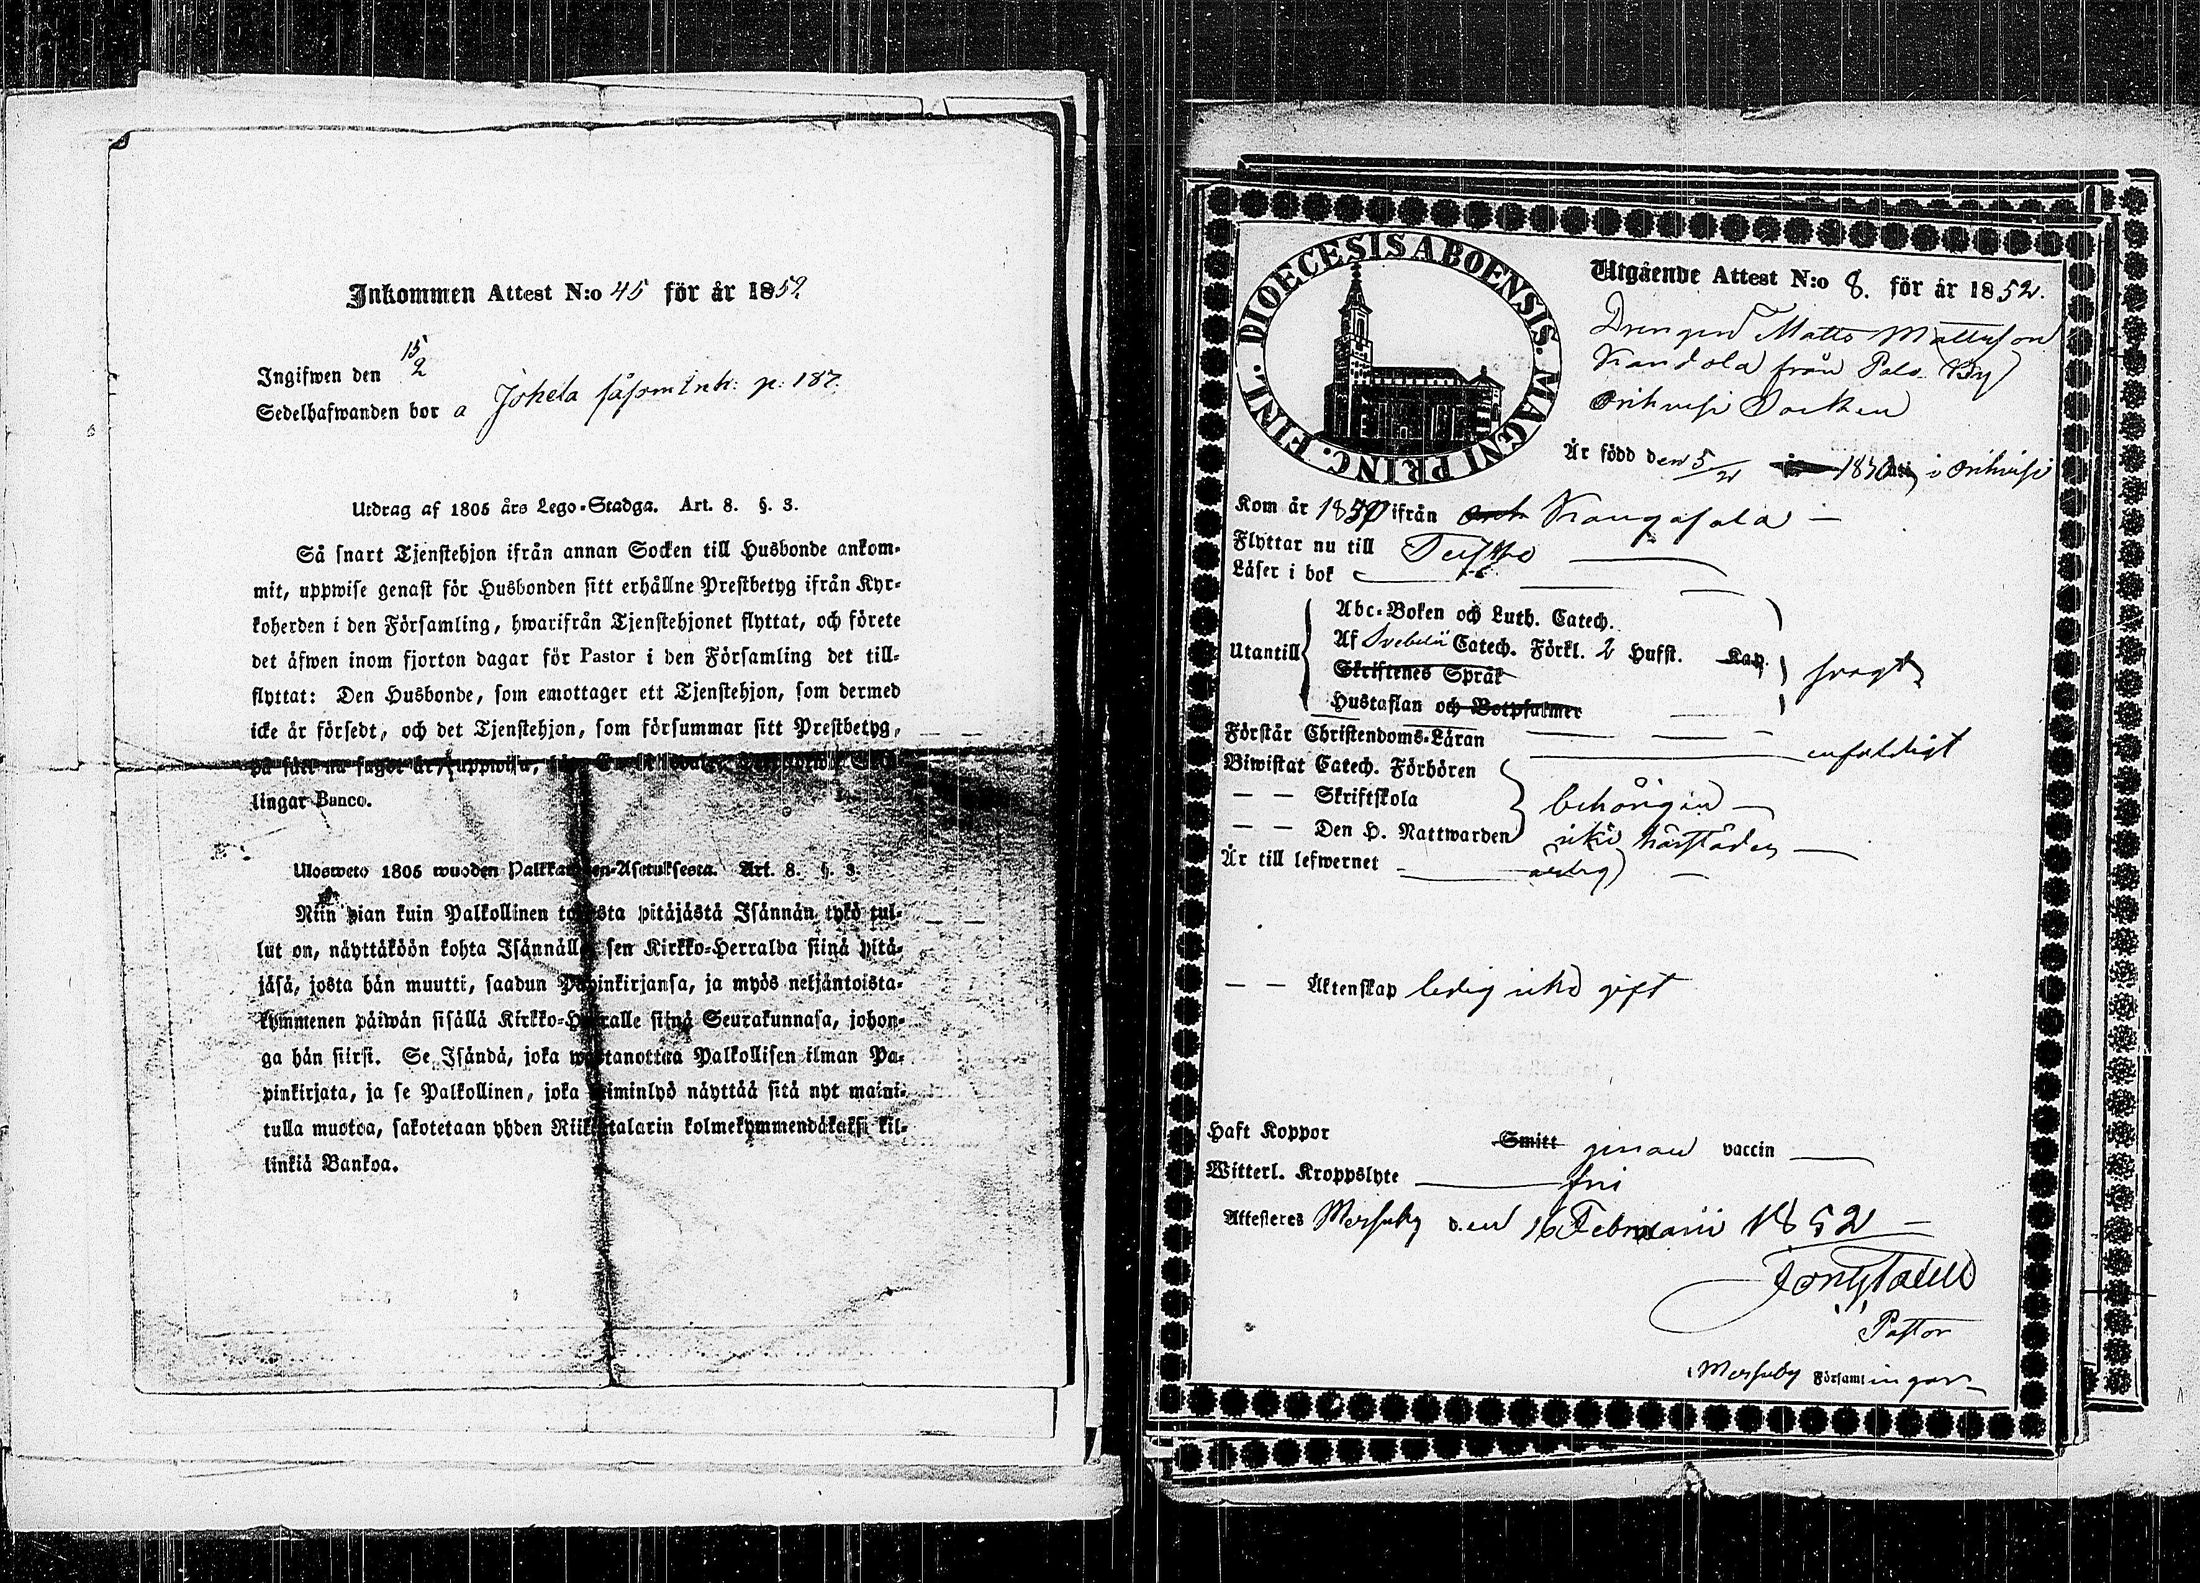 Inkommen Attest N:o 45 för år 1852
Ingifwen den 15/2
Sedelhafwanden bor a Jokela p: 187.
Utdrag af 1805 års Lego-Stadga. Art. 8. §. 3.
Så snart Tjenstehjon ifrån annan Socken till Husbonde ankom-
mit, uppwise genast för Husbonden sitt erhållne Prestbetyg ifrån Kyr-
koherden i den Församling, hwarifrån Tjenstehjonet flyttat, och förete
det äfwen inom fjorton dagar för Pastor i den Församling det till-
flyttat: Den Husbonde, som emottager ett Tjenstehjon, som dermed
icke är försedt, och det Tjenstehjon, som försummar sitt Prestbetyg,
på sätt nu sagdt är, uppwisa,
lingar Banco.
Ulosweto 1805 wuoden Palkkawäen-Asetuksesta. Art. 8. §. 3.
Niin pian kuin Palkollinen toisesta pitäjästä Isännän tykö tul-
lut on, näyttäköön kohta Isännälle sen Kirkko-Herralda siinä pitä-
jäsä, josta hän muutti, saadun Papinkirjansa, ja myös neljäntoista-
kymmenen päiwän sisällä Kirkko-Herralle siinä Seurakunnasa, johon-
ga hän siirsi. Se Isändä, joka wastanottaa Palkollisen ilman Pa-
pinkirjata, ja se Palkollinen, joka laiminlyö näyttää sitä nyt maini-
tulla muotoa, sakotetaan yhden Riikintalarin kolmekymmendäkaksi kil-
linkiä Bankoa.
DIOECESIS ABOENSIS. MAGNI PRINC. FINL.
Utgående Attest N:o 8. för år 1852.
Drengen Matts Mattsson
från Palo By
Orihvesi Socken
Är född den 5/ i Orihvesi
Kom år 185 ifrån Kangasala
Flyttar nu till
Läser i bok
Utantill
Abc-Boken och Luth. Catech.
Af Svebelii Catech. Förkl. 2 Hufst. Kap.
Skriftenes Språk
Hustaflan och Botpsalmer
svagt
Förstår Christendoms-Läran enfaldigt
Biwistat Catech. Förhören
— — Skriftskola behörigen
— — Den H. Nattwarden icke härstädes
Är till lefwernet ärlig
— — Äktenskap ledig icke gift
Haft Koppor Smitt genom vaccin
Witterl. Kroppslyte fri
Attesteres Messuby den 16 Februarii 1852
Pastor
i Messuby Församlingar